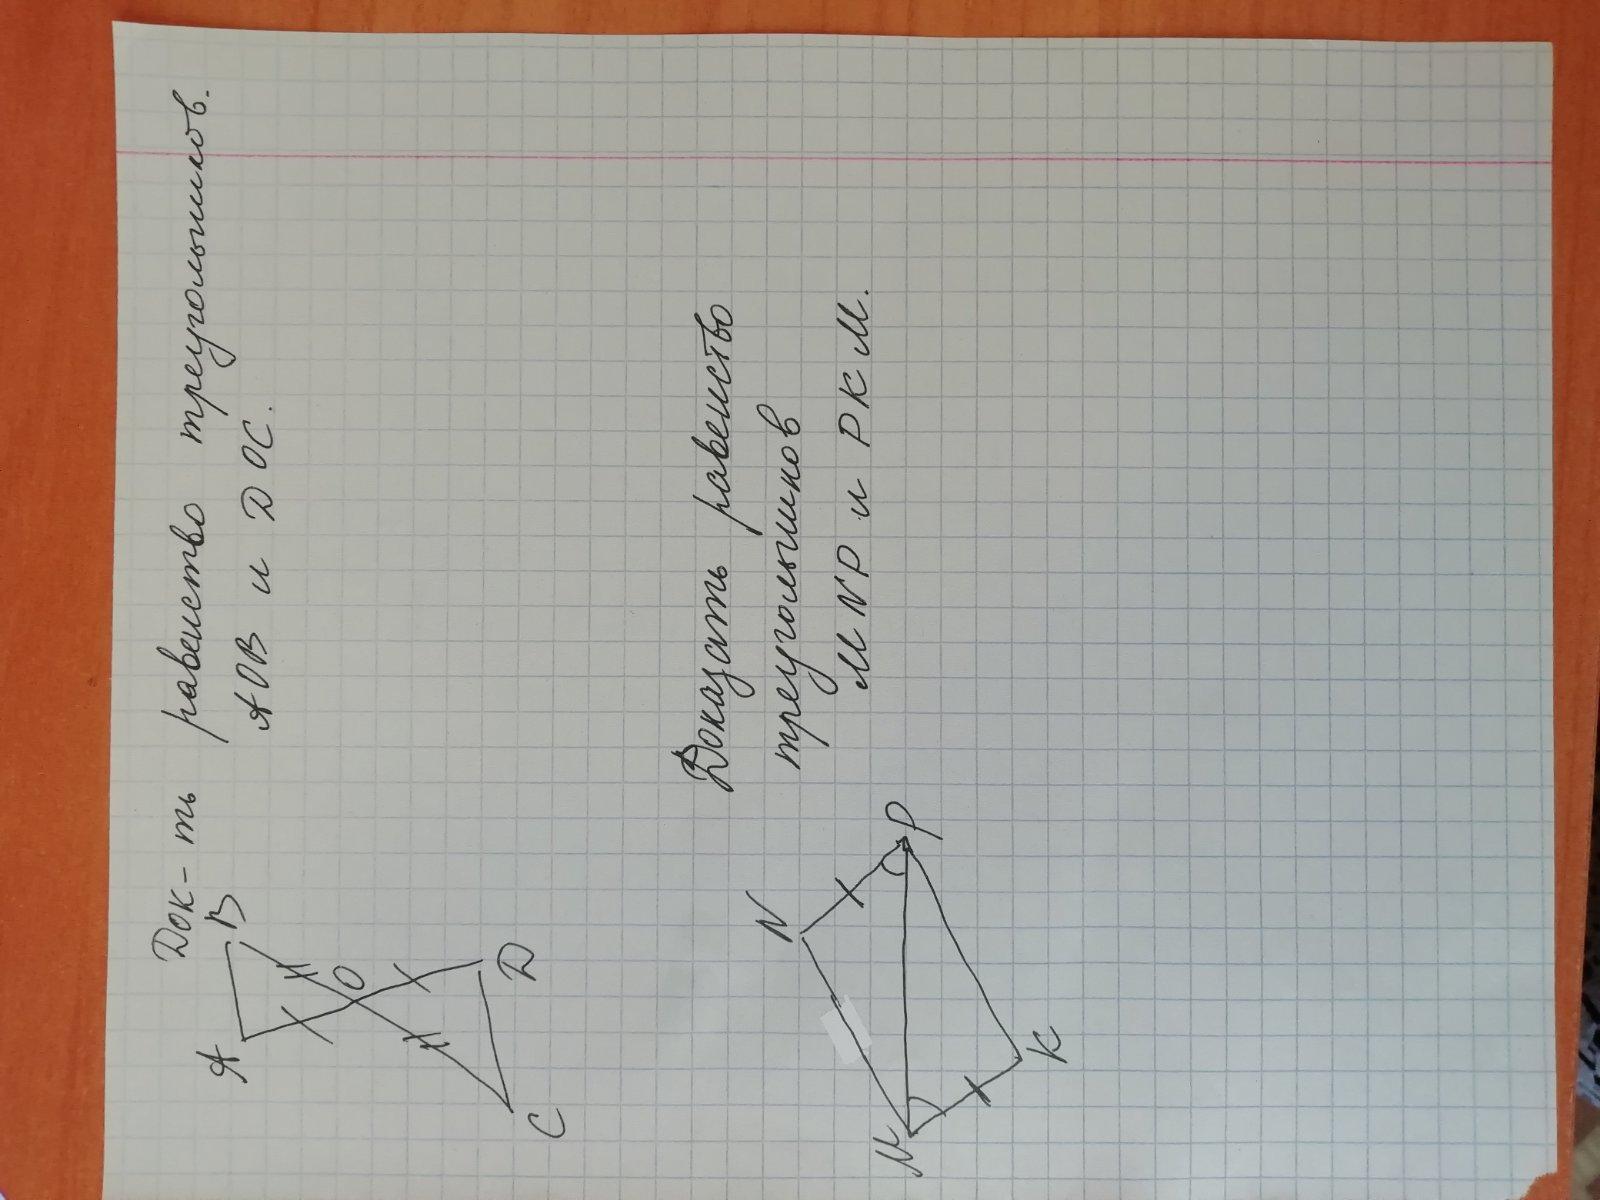 Док-ть равенство треугольников.
АОВ и DОС.
А
В
О
С
D
Доказать равенство
треугольников
MNP и PKM.
N
P
M
K